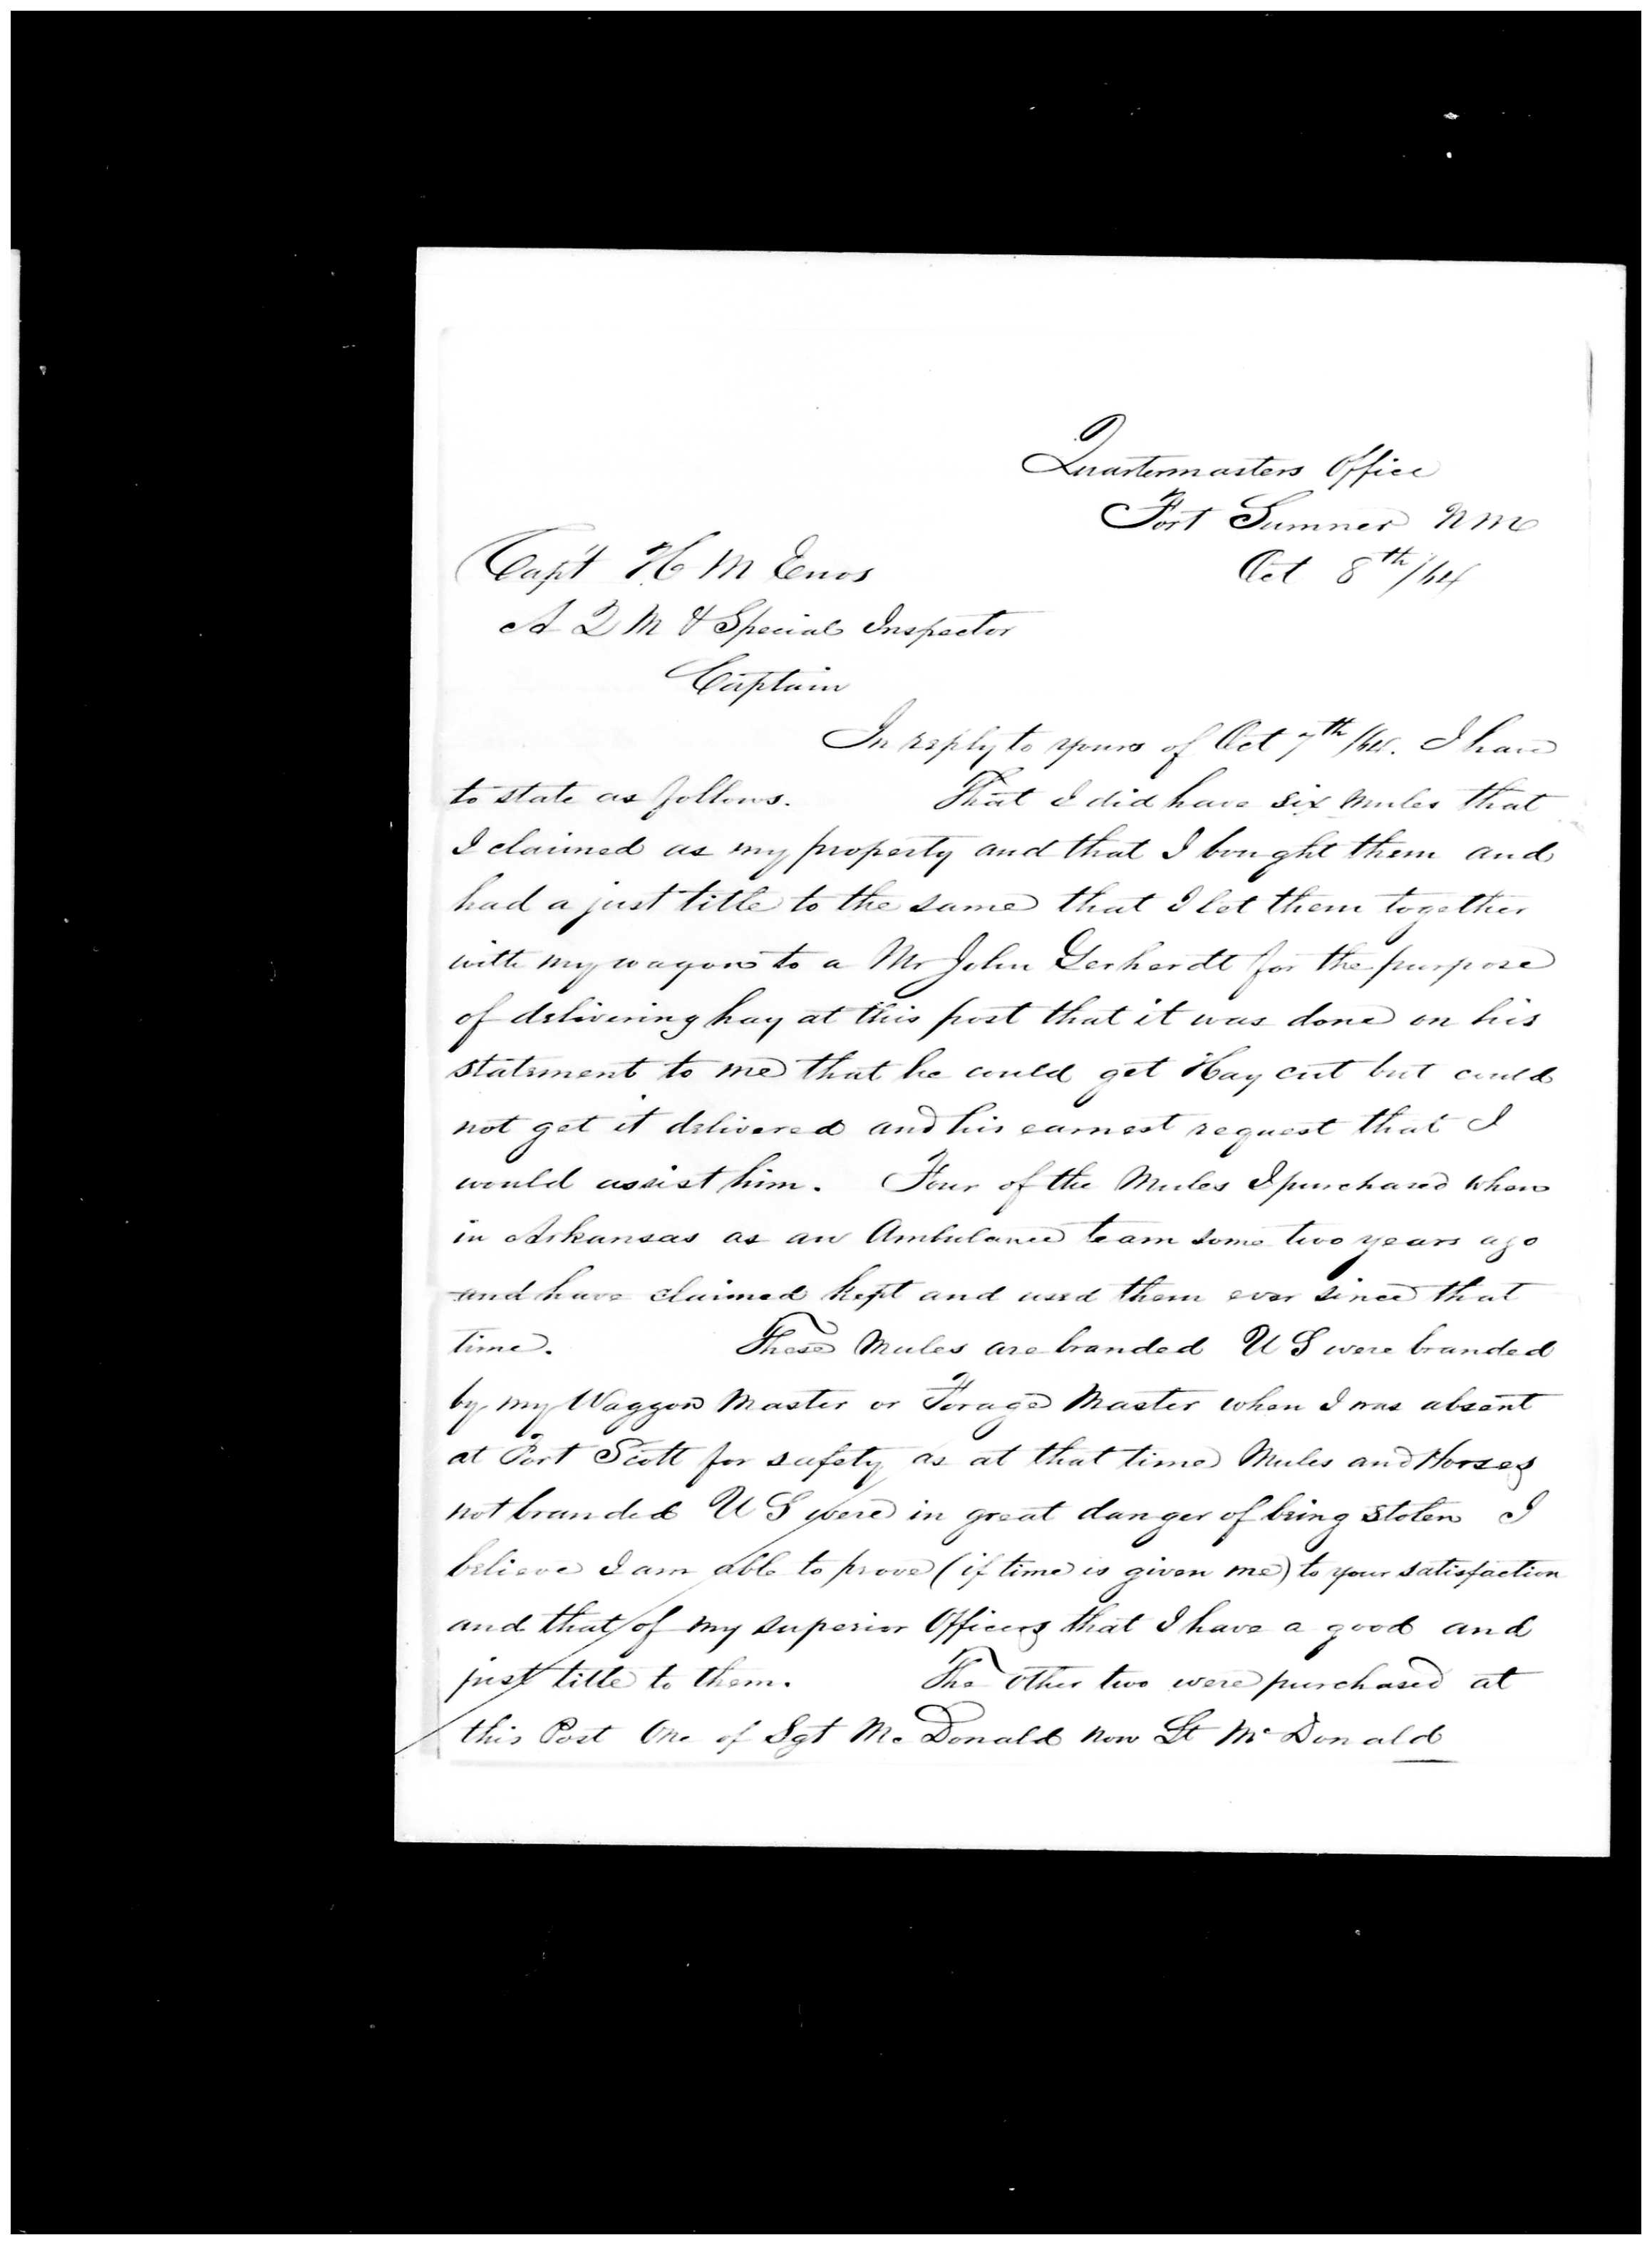 Quartermasters Office
Fort Sumner N M
Oct 8th/64
Capt H M Enos
A Q M & Special Inspector
Captain
In reply to yours of Oct 7th/64. I have
to state as follows. That I did have six Mules that
I claimed as my property and that I bought them and
had a just title to the same that I let them together
with my wagons to a Mr John Gerhardt for the purpose
of delivering hay at this post that it was done on his
statement to me that he could get Hay cut but could
not get it delivered and his earnest request that I
would assist him. Four of the Mules I purchased when
in Arkansas as an Ambulance team some two years ago
and have claimed kept and used them ever since that
time. These Mules are branded U S were branded
by my Waggon Master or Forage Master when I was absent
at Fort Scott for safety as at that time Mules and Horses
not branded U S were in great danger of being stolen I
believe I am able to prove (if time is given me) to your satisfaction
and that of my superior Officers that I have a good and
just title to them. The other two were purchased at
this Post One of Sgt Mc Donald now Lt Mc Donald